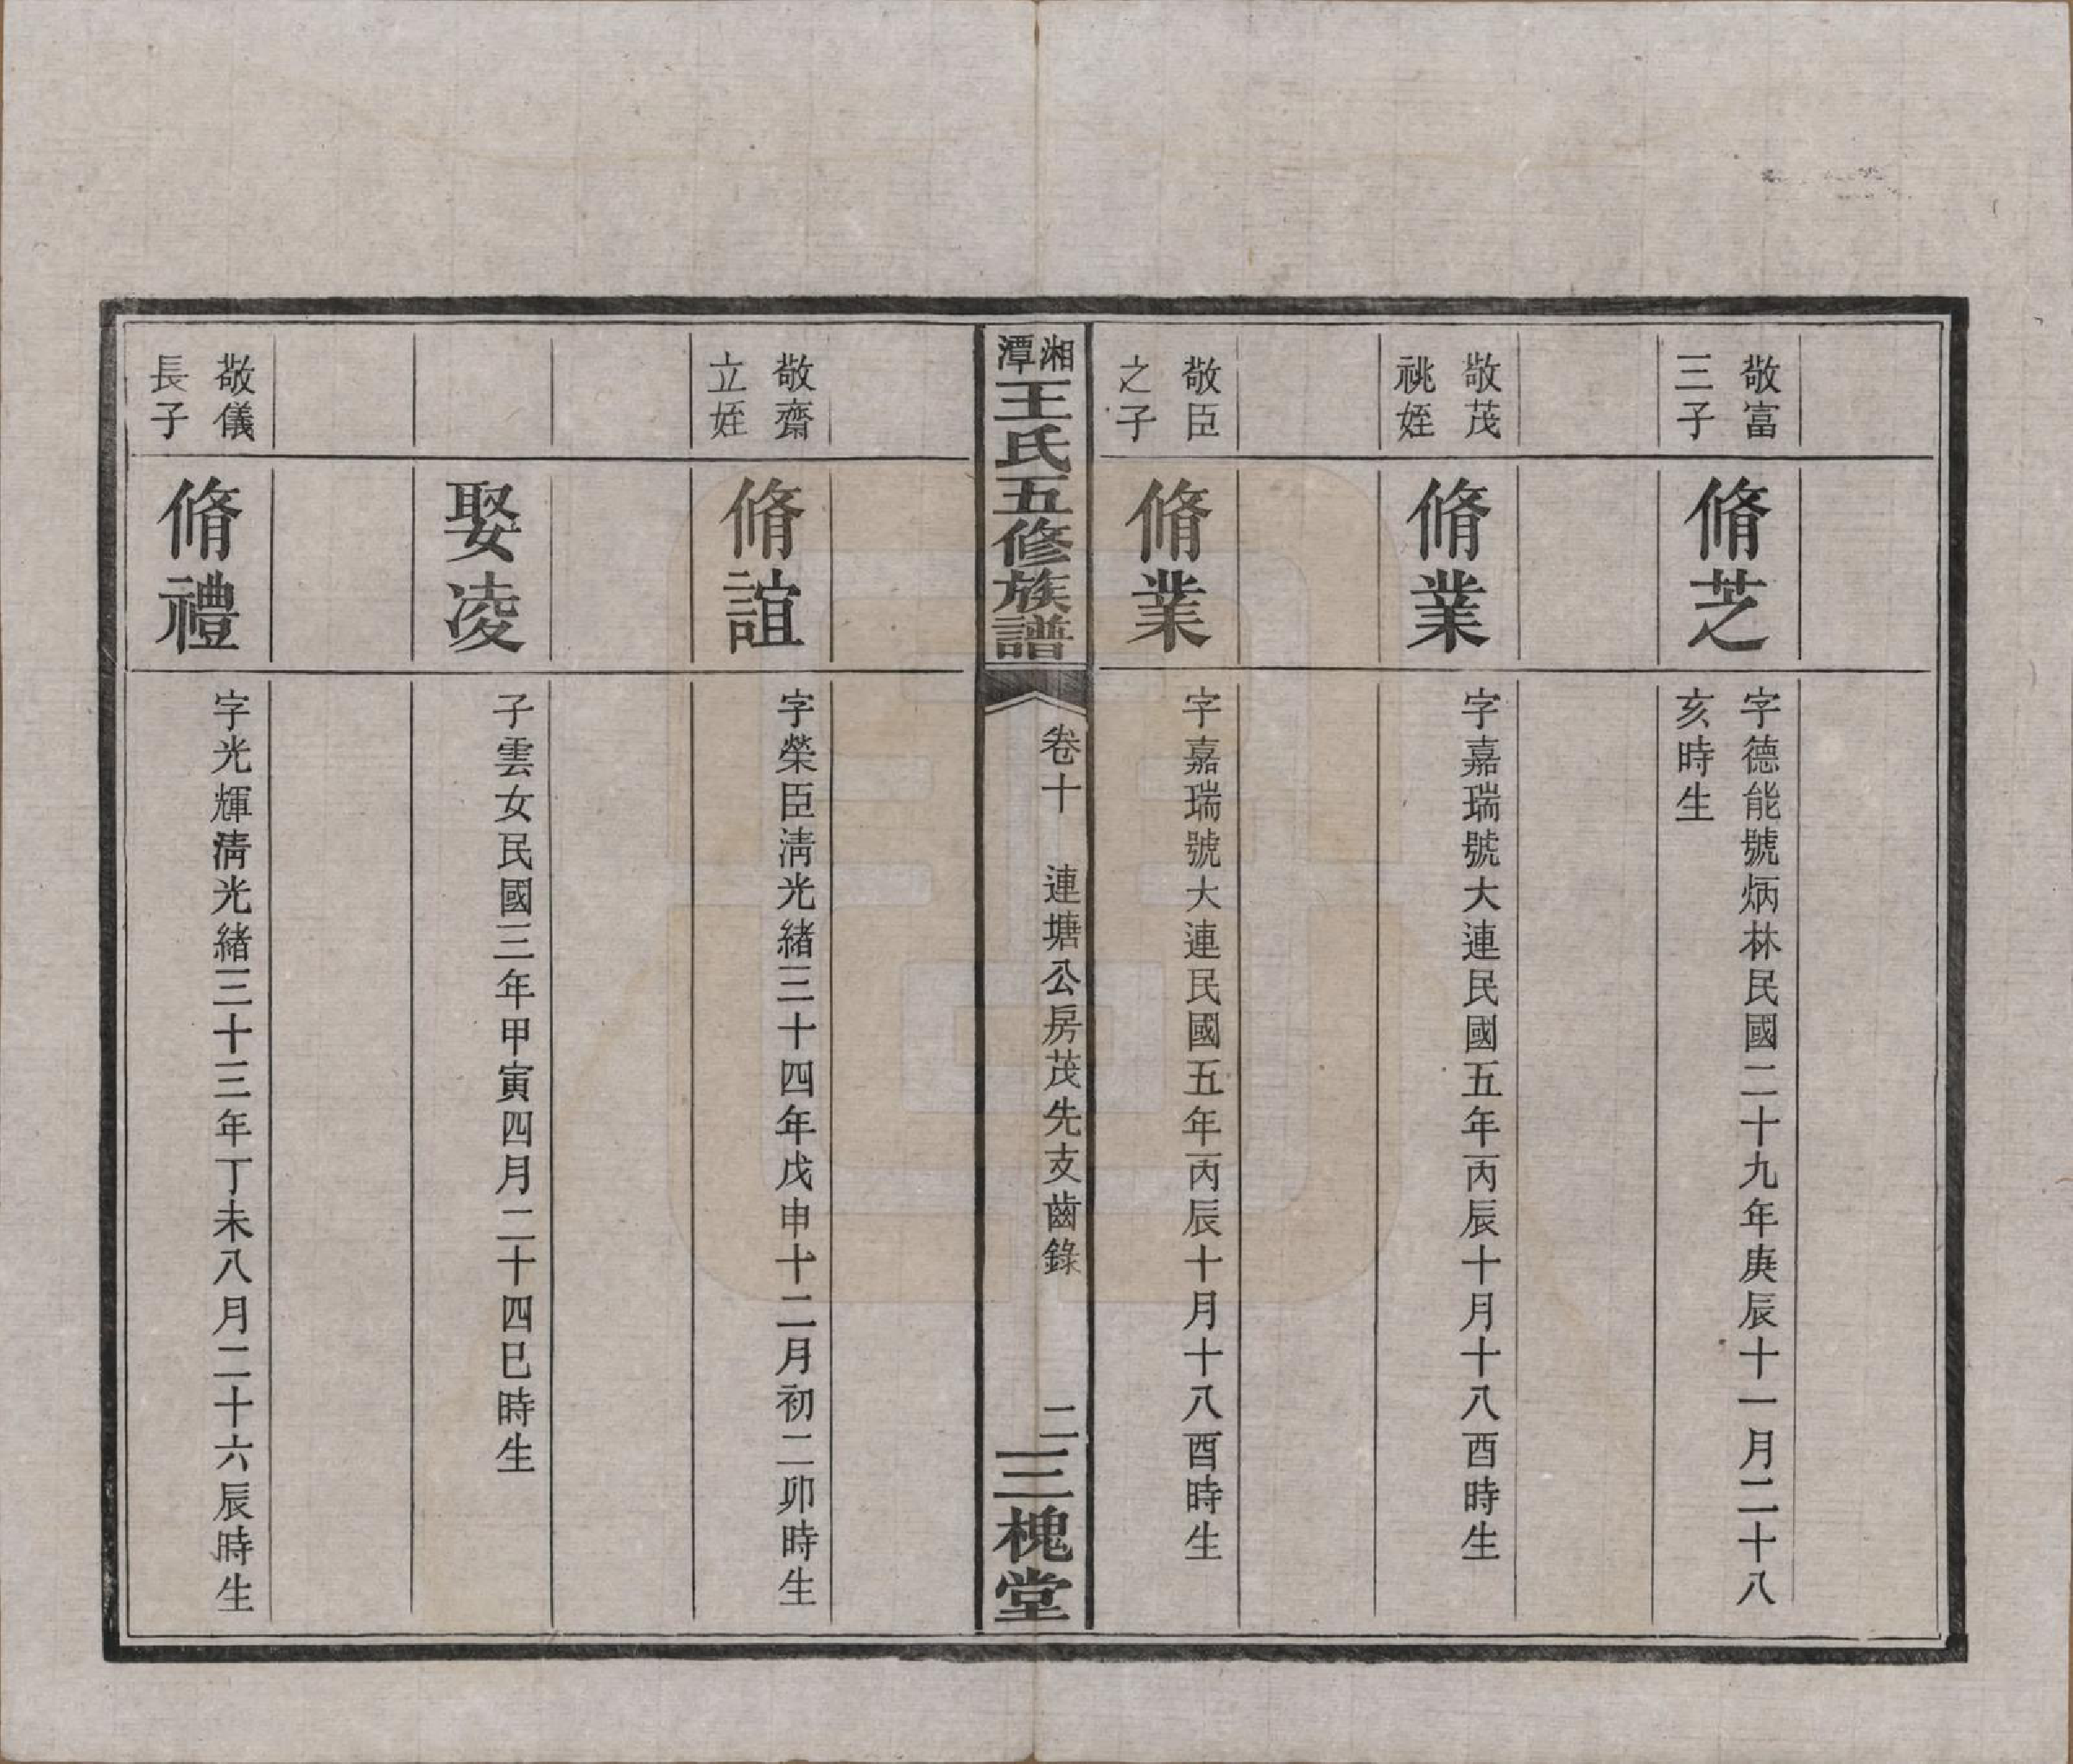 敬富
三子
脩芝
字德能號炳林民國二十九年庚辰十一月二十八
亥時生
敬茂
祧姪
脩業
字嘉瑞號大連民國五年丙辰十月十八酉時生
敬臣
之子
脩業
字嘉瑞號大連民國五年丙辰十月十八酉時生
湘潭王氏五修族譜
卷十 連塘公房茂先支齒錄 二
三槐堂
敬齋
立姪
脩誼
字榮臣淸光緒三十四年戊申十二月初二卯時生
娶凌
子雲女民國三年甲寅四月二十四巳時生
敬儀
長子
脩禮
字光輝淸光緒三十三年丁未八月二十六辰時生